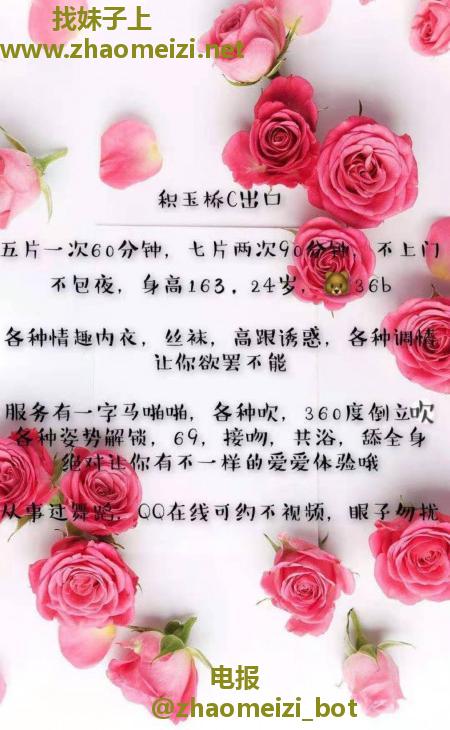 找妹子上
www.zhaomeizi.net
积玉桥C出口
五片一次60分钟，七片两次90分钟，不上门
不包夜，身高163，24岁，🐻36b
各种情趣内衣，丝袜，高跟诱惑，各种调情
让你欲罢不能
服务有一字马啪啪，各种吹，360度倒立吹
各种姿势解锁，69，接吻，共浴，舔全身
绝对让你有不一样的爱爱体验哦
从事过舞蹈，QQ在线可约不视频，眼子勿扰
电报
@zhaomeizi_bot